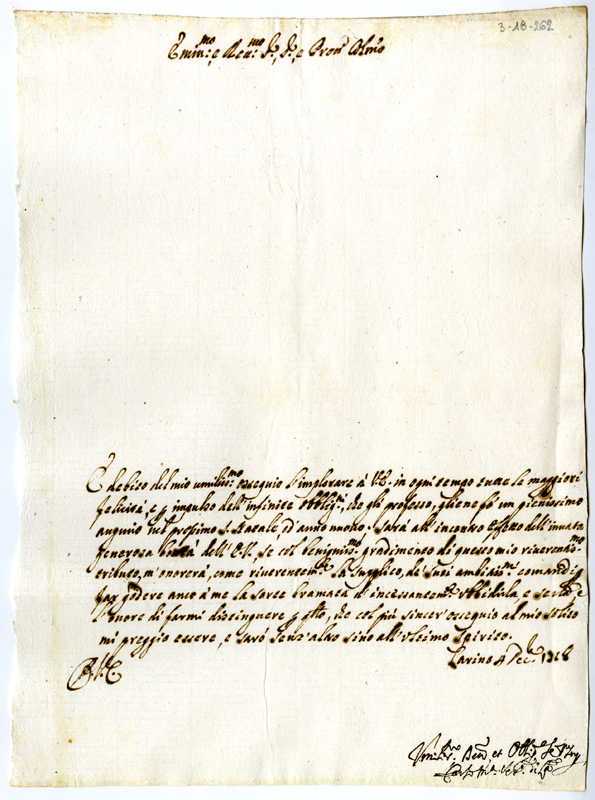 3-18-262
Emin:mo, e Rev:mo Sr, Sr, e Pron Colmo
È debito del mio umiliss:mo ossequio l'implorare à V.E. in ogni tempo tutte le maggiori
felicità, e p impulso dell'infinite obblig:ni, che gli professo, gliene fò un pienissimo
augurio nel prossimo S. Natale, e d'anno nuovo. Sarà all'incontro effetto dell'innata
generosa bontà dell'E.V. se col benigniss:o gradimento di questo mio riverentiss:mo
tributo, m'onorerà, come riverentem:te La supplico, de' suoi ambitiss:mi comandi, e
far godere anco à me la sorte bramata d'incessantem:te obbidirla, e
l'onore di farmi distinguere p que, che col più sincer'ossequio al mio solito
mi preggio essere, e sarò senz'altro sino all'ultimo spirito.
Larino 4 Dec:re
Umil:mo Dev:o et Obb:o Ser